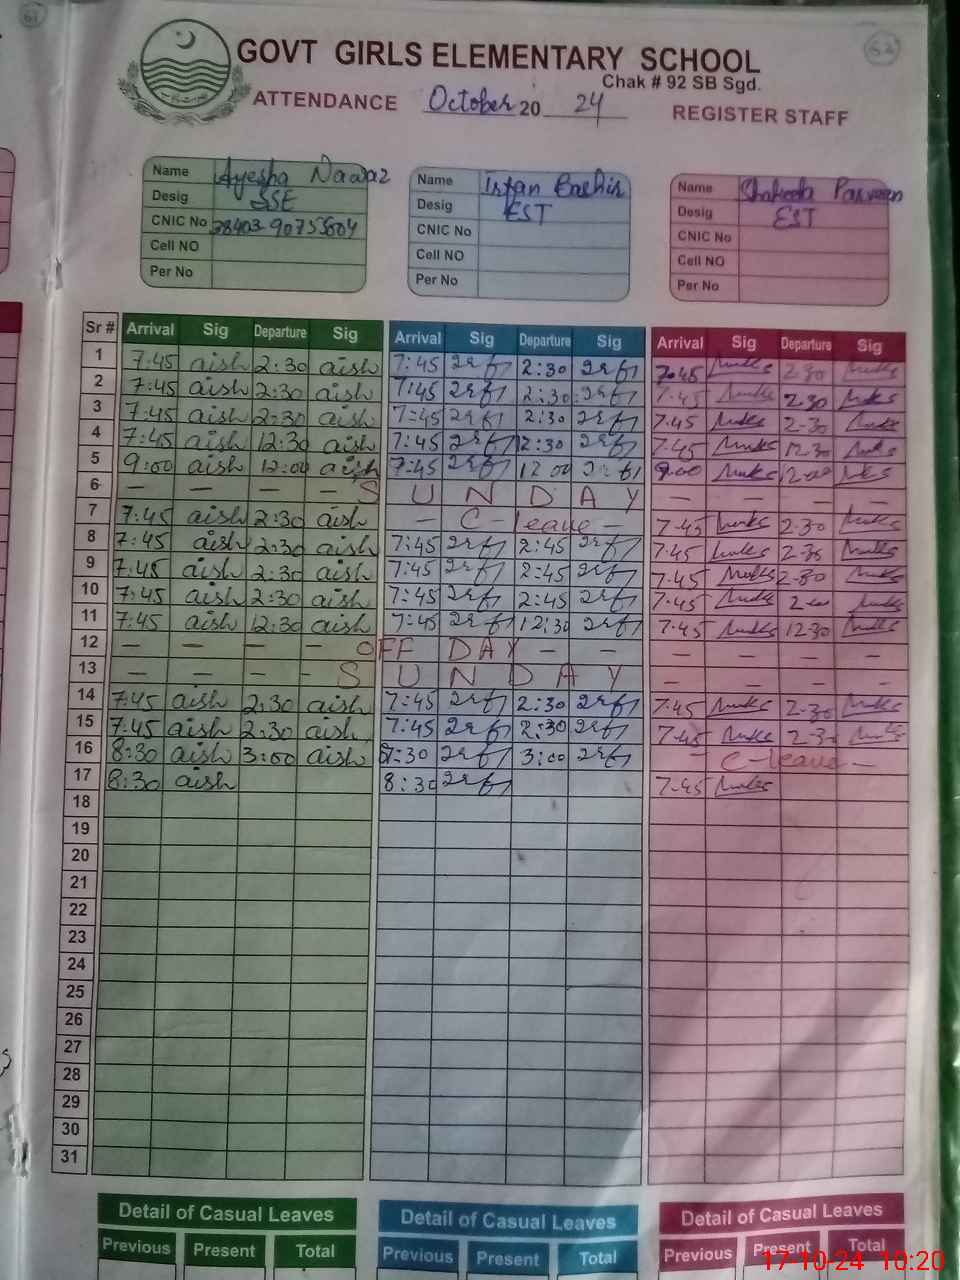 61
62
GOVT GIRLS ELEMENTARY SCHOOL
Chak # 92 SB Sgd.
ATTENDANCE October 20 24 REGISTER STAFF
Name Ayesha Nawaz Name Irfan Bashir Name Shakeela Parveen
Desig SSE Desig EST Desig EST
CNIC No CNIC No CNIC No
Cell NO Cell NO Cell NO
Per No Per No Per No
Sr # Arrival Sig Departure Sig Arrival Sig Departure Sig Arrival Sig Departure Sig
1 7:45 aish 2:30 aish 7:45 2:30 7.45 2.30
2 7:45 aish 2:30 aish 7:45 2:30 7.45 2.30
3 7:45 aish 2:30 aish 7:45 2:30 7.45 2.30
4 7:45 aish 12:30 aish 7:45 12:30 7.45 12.30
5 9:00 aish 12:00 aish 7:45 12:00 9.00 12.00
6 — — — — S U N D A Y — — — —
7 7:45 aish 2:30 aish — C-leave — 7.45 2.30
8 7:45 aish 2:30 aish 7:45 2:45 7.45 2.30
9 7:45 aish 2:30 aish 7:45 2:45 7.45 2.30
10 7:45 aish 2:30 aish 7:45 2:45 7.45
11 7:45 aish 12:30 aish 7:45 12:30 7.45 12.30
12 — — — — OFF DAY — — — — — —
13 — — — — S U N D A Y — — — —
14 7:45 aish 2:30 aish 7:45 2:30 7.45 2.30
15 7:45 aish 2:30 aish 7:45 2:30 7.45 2.30
16 8:30 aish 3:00 aish 8:30 3:00 — C-leave —
17 8:30 aish 8:30 7.45
18
19
20
21
22
23
24
25
26
27
28
29
30
31
Detail of Casual Leaves Detail of Casual Leaves Detail of Casual Leaves
Previous Present Total Previous Present Total Previous Present Total
17-10-24 10:20